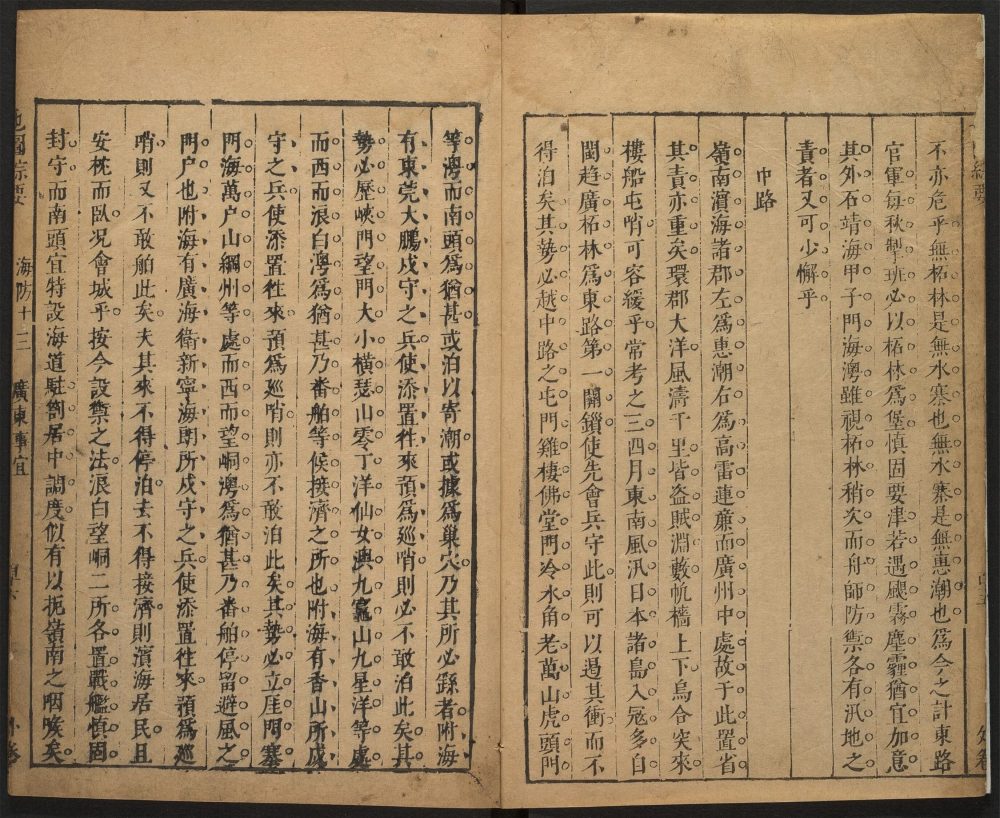 不亦危乎無柘林是無水寨也無水寨是無惠潮也爲今之計東路
官軍每秋掣班必以柘林爲堡慎固要津若遇颶霧塵霾猶宜加意
其外石靖海甲子門海澳雖視柘林稍次而舟師防禦各有汛地之
責者又可少懈乎
中路
嶺南濱海諸郡左爲惠潮右爲高雷連廉而廣州中處故于此置省
其責亦重矣環郡大洋風濤千里皆盜賊淵藪帆檣上下烏合突來
樓船屯哨可容緩乎常考之三四月東南風汛日本諸島入冦多自
閩趨廣柘林爲東路第一關鎖使先會兵守此則可以遏其衝而不
得泊矣其勢必越中路之屯門雞棲佛堂門冷水角老萬山虎頭門
等澳而南頭爲猶甚或泊以寄潮或據爲巢穴乃其所必繇者附海
有東莞大鵬戍守之兵使添置徃來預爲巡哨則必不敢泊此矣其
勢必歷峽門望門大小橫瑟山零丁洋仙女澳九竈山九星洋等處
而西而浪白澳爲猶甚乃番舶等候接濟之所也附海有香山所戍
守之兵使添置徃來預爲巡哨則亦不敢泊此矣其勢必立厓門寨
門海萬户山綱州等處而西而望峒澳爲猶甚乃番舶停留避風之
門户也附海有廣海衛新寧海朗所戍守之兵使添置徃來預爲巡
哨則又不敢舶此矣夫其來不得停泊去不得接濟則濱海居民且
安枕而臥况會城乎按今設禦之法浪白望峒二所各置戰艦慎固
封守而南頭宜特設海道駐劄居中調度似有以扼嶺南之咽喉矣
海防十三
廣東事宜